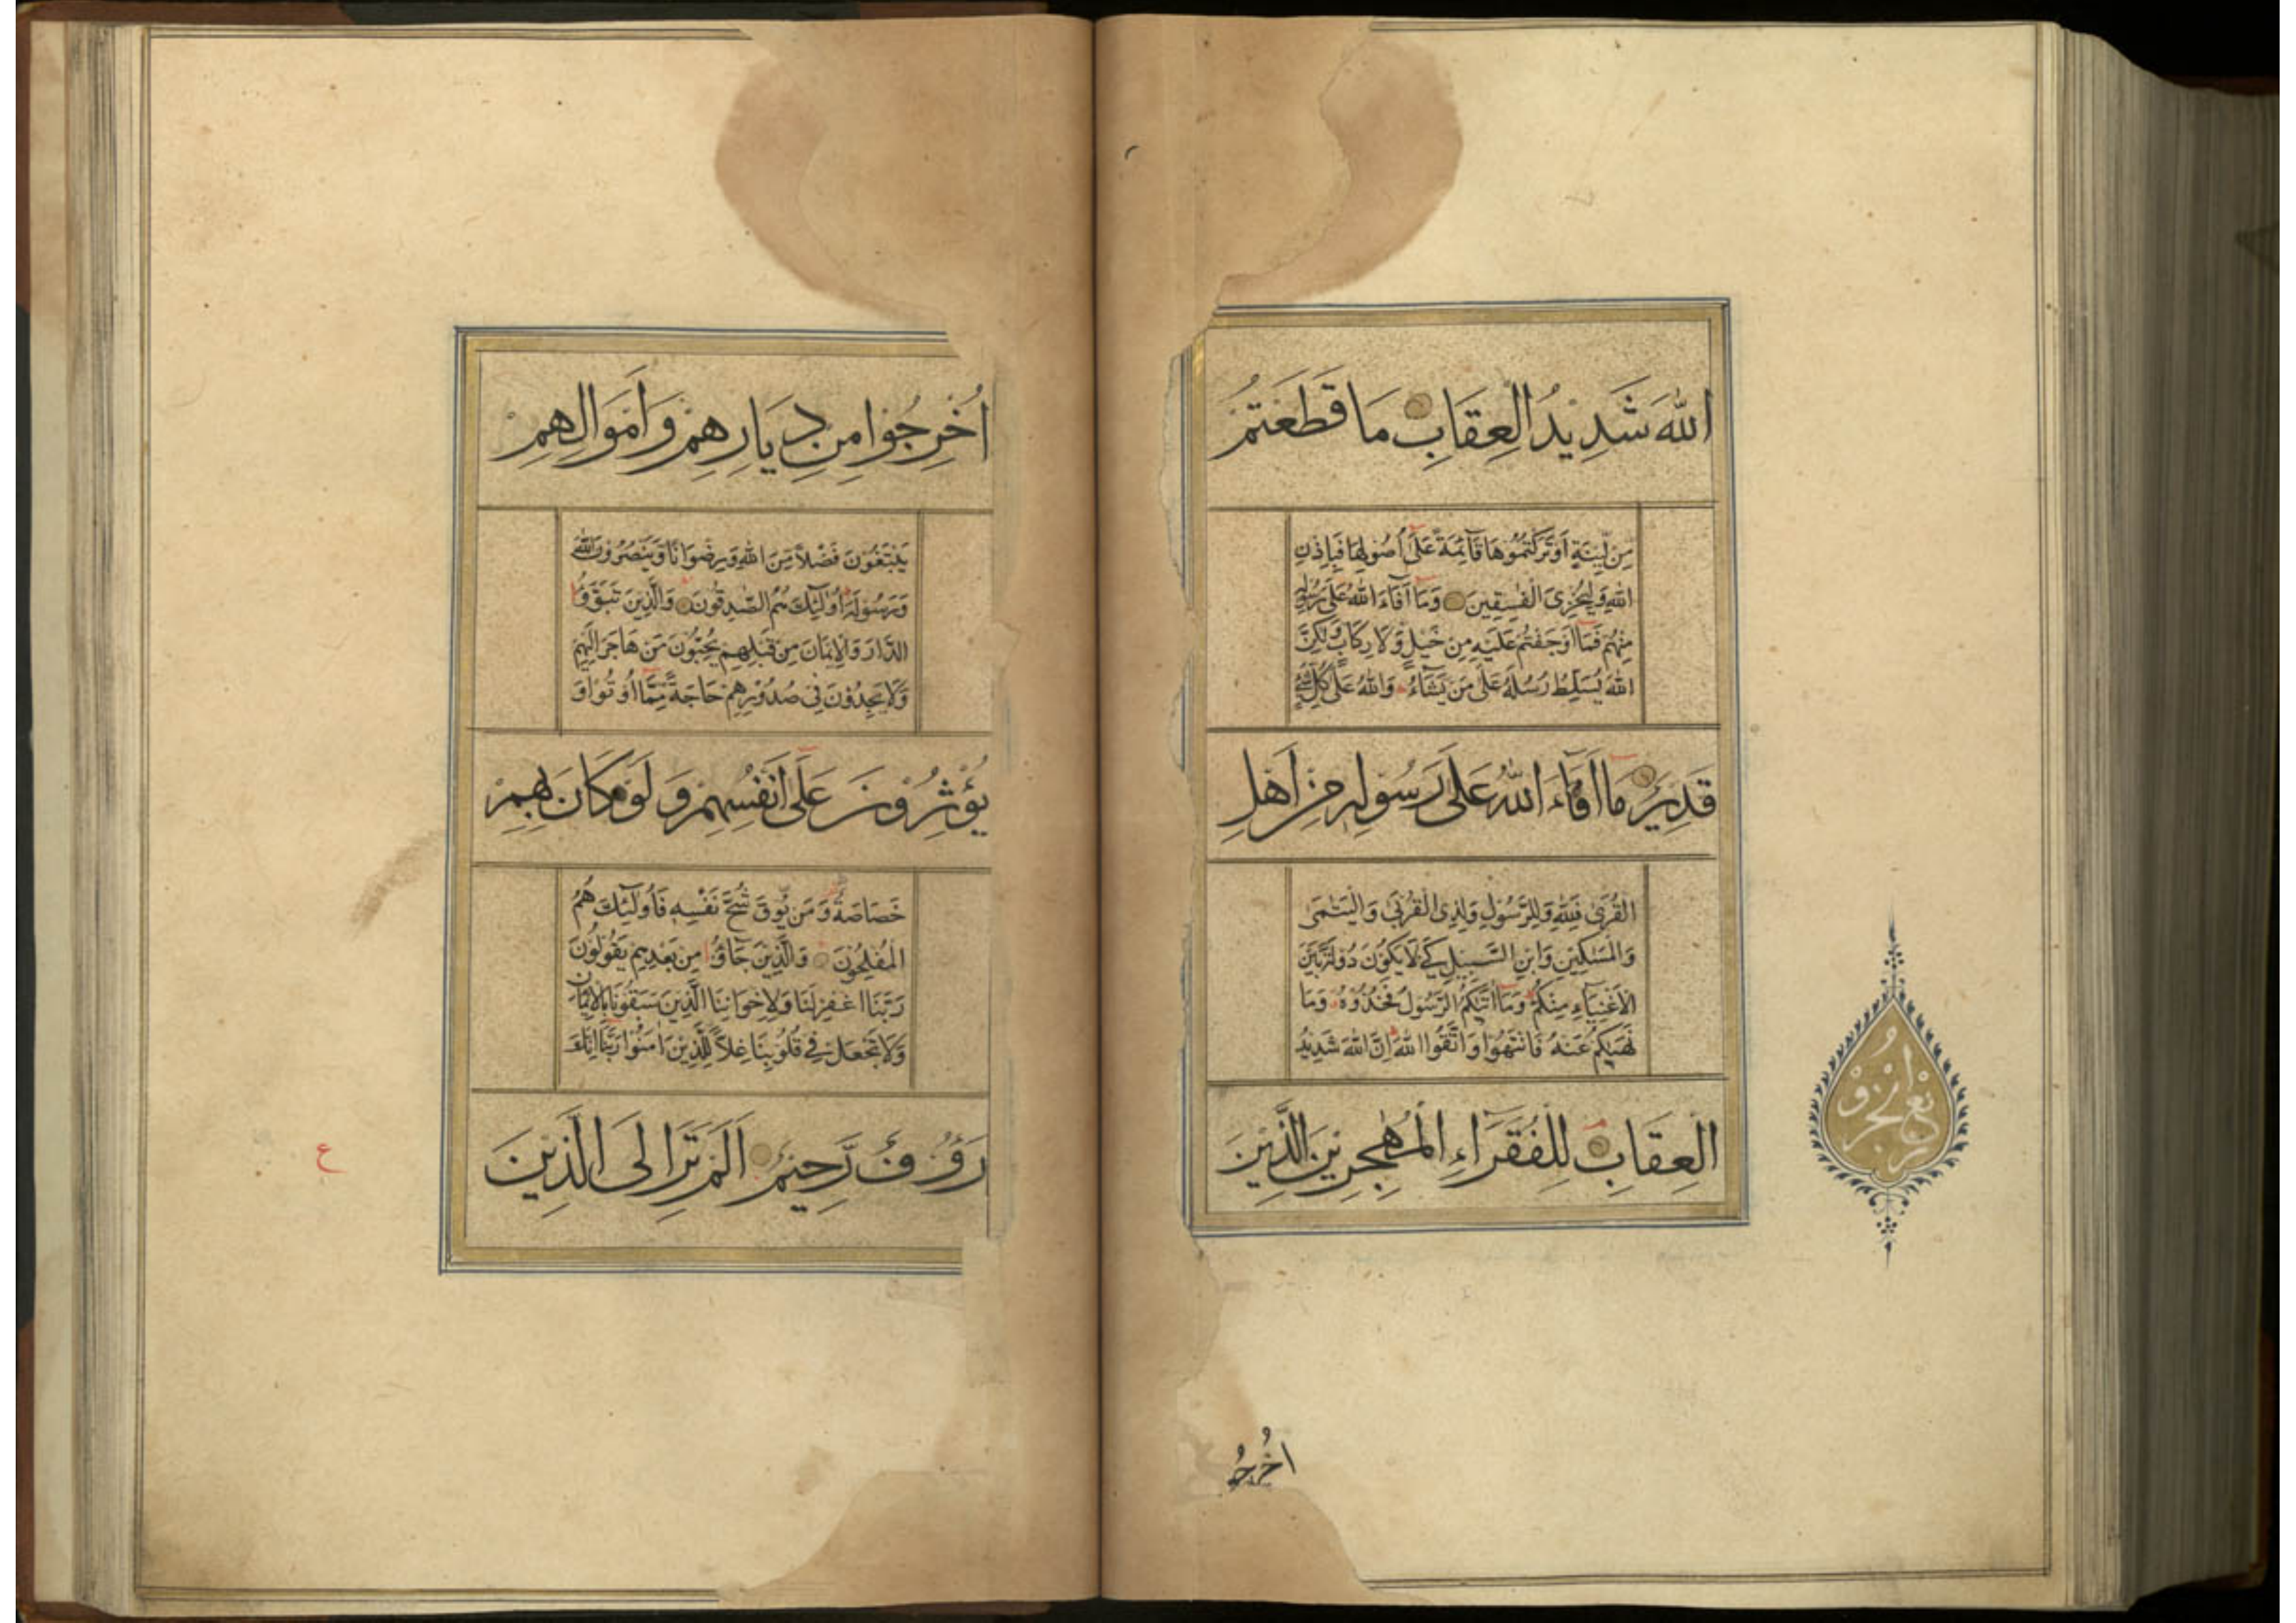 اللهَ شَدِيدُ الْعِقَابِ مَا قَطَعْتُمْ
مِنْ لِّينَةٍ اَوْ تَرَكْتُمُوْهَا قَآئِمَةً عَلَى اُصُوْلِهَا فَبِاِذْنِ
اللهِ وَلِيُخْزِىَ الْفٰسِقِيْنَ وَمَا اَفَآءَ اللهُ عَلٰى رَسُوْلِهٖ
مِنْهُمْ فَمَا اَوْجَفْتُمْ عَلَيْهِ مِنْ خَيْلٍ وَّلَا رِكَابٍ وَلٰكِنَّ
اللهَ يُسَلِّطُ رُسُلَهُ عَلٰى مَنْ يَّشَآءُ وَاللهُ عَلٰى كُلِّ شَىْءٍ
قَدِيْرٌ مَا اَفَآءَ اللهُ عَلٰى رَسُوْلِهٖ مِنْ اَهْلِ
الْقُرٰى فَلِلّٰهِ وَلِلرَّسُوْلِ وَلِذِى الْقُرْبٰى وَالْيَتٰمٰى
وَالْمَسٰكِيْنِ وَابْنِ السَّبِيْلِ كَىْ لَا يَكُوْنَ دُوْلَةً بَيْنَ
الْاَغْنِيَآءِ مِنْكُمْ وَمَا اٰتٰىكُمُ الرَّسُوْلُ فَخُذُوْهُ وَمَا
نَهٰىكُمْ عَنْهُ فَانْتَهُوْا وَاتَّقُوا اللهَ اِنَّ اللهَ شَدِيْدُ
الْعِقَابِ لِلْفُقَرَآءِ الْمُهٰجِرِيْنَ الَّذِيْنَ
اُخْرِجُو
اُخْرِجُوْا مِنْ دِيَارِهِمْ وَاَمْوَالِهِمْ
يَبْتَغُوْنَ فَضْلًا مِّنَ اللهِ وَرِضْوَانًا وَّيَنْصُرُوْنَ اللهَ
وَرَسُوْلَهٗ اُولٰٓئِكَ هُمُ الصّٰدِقُوْنَ وَالَّذِيْنَ تَبَوَّؤُا
الدَّارَ وَالْاِيْمَانَ مِنْ قَبْلِهِمْ يُحِبُّوْنَ مَنْ هَاجَرَ اِلَيْهِمْ
وَلَا يَجِدُوْنَ فِىْ صُدُوْرِهِمْ حَاجَةً مِّمَّا اُوْتُوْا وَ
يُؤْثِرُوْنَ عَلٰى اَنْفُسِهِمْ وَلَوْ كَانَ بِهِمْ
خَصَاصَةٌ وَمَنْ يُّوْقَ شُحَّ نَفْسِهٖ فَاُولٰٓئِكَ هُمُ
الْمُفْلِحُوْنَ وَالَّذِيْنَ جَآؤُا مِنْ بَعْدِهِمْ يَقُوْلُوْنَ
رَبَّنَا اغْفِرْ لَنَا وَلِاِخْوَانِنَا الَّذِيْنَ سَبَقُوْنَا بِالْاِيْمَانِ
وَلَا تَجْعَلْ فِىْ قُلُوْبِنَا غِلًّا لِّلَّذِيْنَ اٰمَنُوْا رَبَّنَا اِنَّكَ
رَؤُفٌ رَّحِيْمٌ اَلَمْ تَرَ اِلَى الَّذِيْنَ
ع